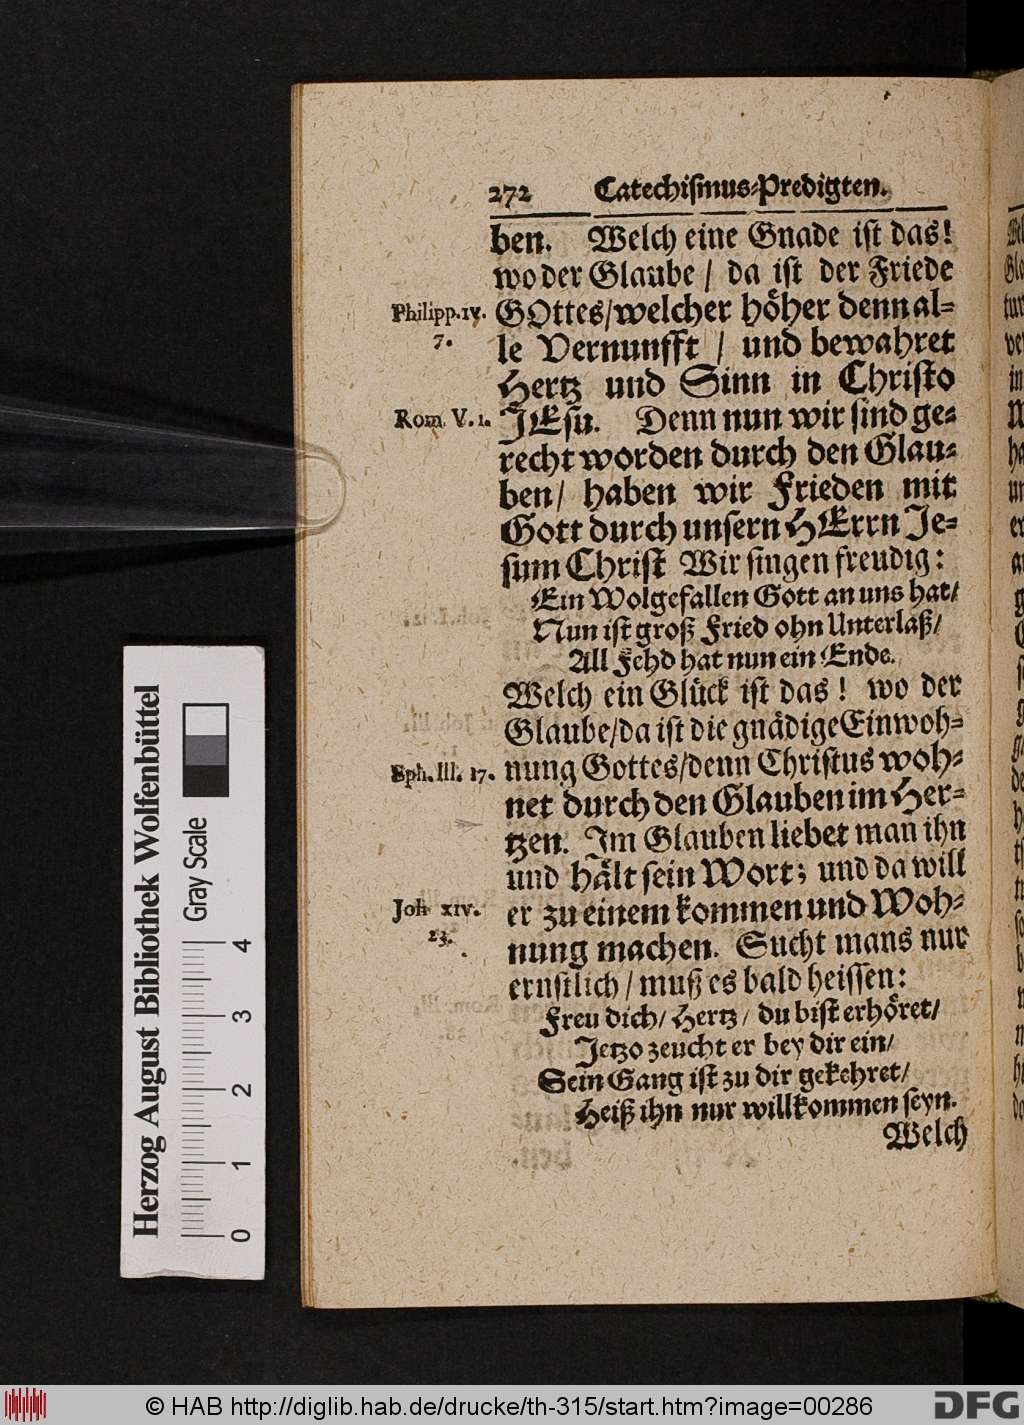 272 Catechismus-Predigten.
ben. Welch eine Gnade ist das!
wo der Glaube / da ist der Friede
Philipp. IV. 7.
GOttes/welcher höher denn al-
le Vernunfft / und bewahret
Hertz und Sinn in Christo
Rom. V. 1.
JEsu. Denn nun wir sind ge-
recht worden durch den Glau-
ben/ haben wir Frieden mit
Gott durch unsern HErrn Je-
sum Christ Wir singen freudig:
Ein Wolgefallen Gott an uns hat/
Nun ist groß Fried ohn Unterlaß/
All Fehd hat nun ein Ende.
Welch ein Glück ist das! wo der
Glaube/da ist die gnädige Einwoh-
Eph. III. 17.
nung Gottes/denn Christus woh-
net durch den Glauben im Her-
tzen. Im Glauben liebet man ihn
und hält sein Wort; und da will
Joh XIV. 23.
er zu einem kommen und Woh-
nung machen. Sucht mans nur
ernstlich / muß es bald heissen:
Freu dich/ Hertz/ du bist erhöret/
Jetzo zeucht er bey dir ein/
Sein Gang ist zu dir gekehret/
Heiß ihn nur willkommen seyn.
Welch
Herzog August Bibliothek Wolfenbüttel
Gray Scale
0 1 2 3 4
© HAB http://diglib.hab.de/drucke/th-315/start.htm?image=00286
DFG